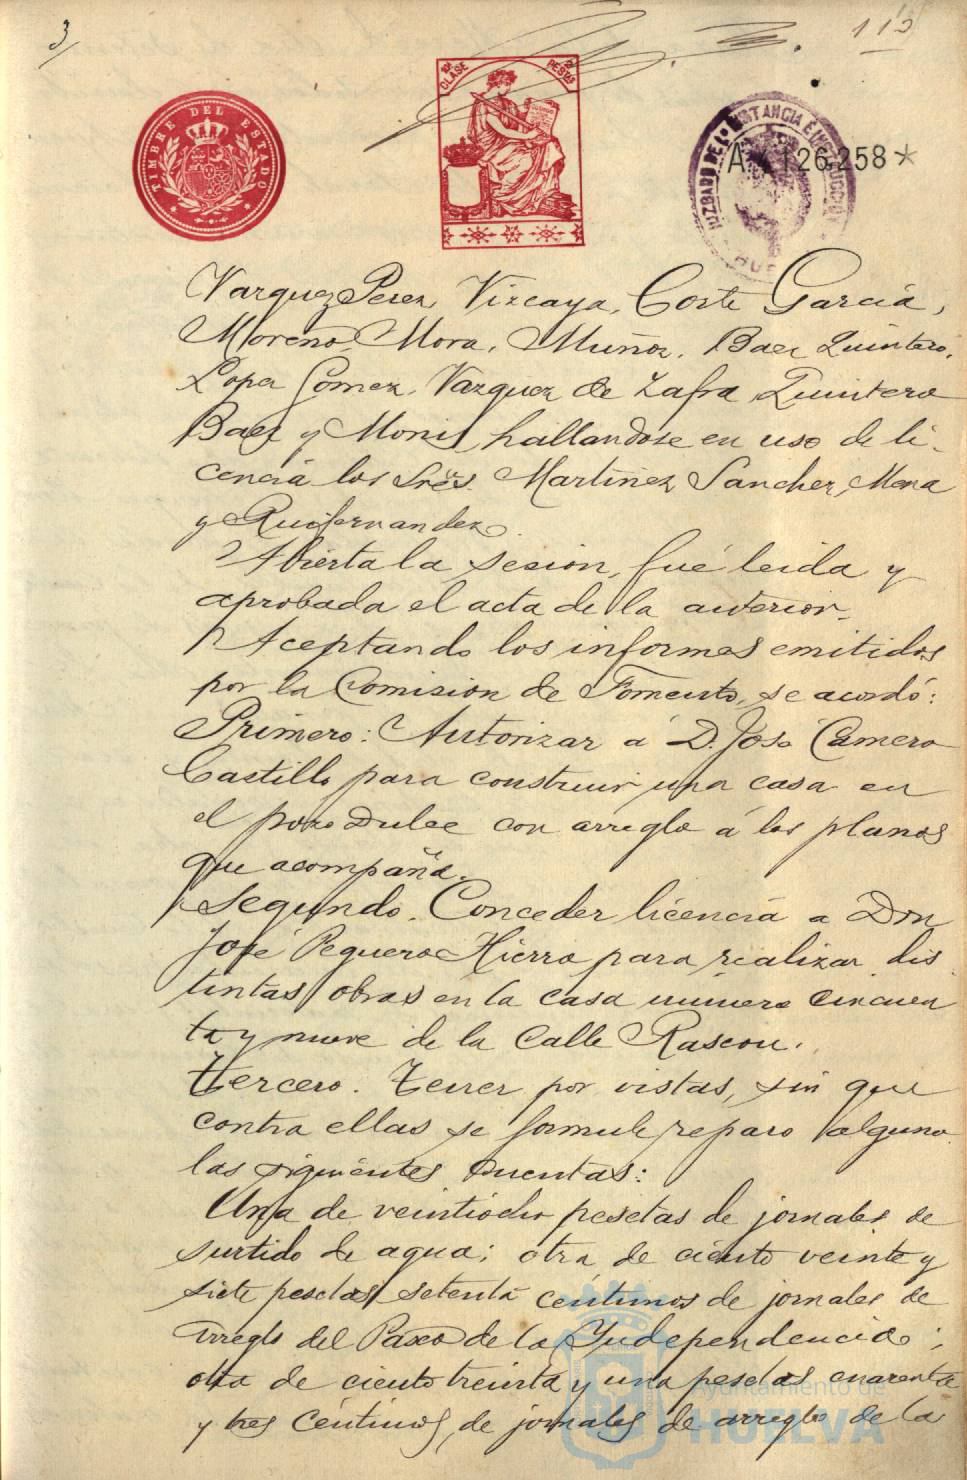 3
112
TIMBRE DEL ESTADO
10ª CLASE
2 PESTAS
JUZGADO DE 1ª INSTANCIA É INSTRUCCION
HUE
A 4126,258*
Vazquez Perez, Vizcaya, Corte Garcia,
Moreno, Mora, Muñoz, Baez Quintero,
Lopez Gomez, Vazquez de Zafra, Quintero
Baez y Monis, hallandose en uso de li-
cencia los Sres. Martinez Sanchez, Mora
y Ruifernandez.
Abierta la sesion, fué leida y
aprobada el acta de la anterior.
Aceptando los informes emitidos
por la Comision de Fomento, se acordó:
Primero: Autorizar á D. José Camero
Castillo para construir una casa en
el pozo Dulce con arreglo á los planos
que acompaña.
Segundo. Conceder licencia a Don
José Peguero Hierro para realizar dis
tintas obras en la casa número cincuen
ta y nueve de la Calle Rascon.
Tercero. Tener por vistas, sin que
contra ellas se formule reparo alguno
las siguientes cuentas:
Una de veintiocho pesetas de jornales de
surtido de agua; otra de ciento veinte y
siete pesetas setenta céntimos de jornales de
arreglo del Paseo de la Yndependencia;
otra de ciento treinta y una pesetas cuarenta
y tres céntimos, de jornales de arreglo de la
Ayuntamiento de
HUELVA